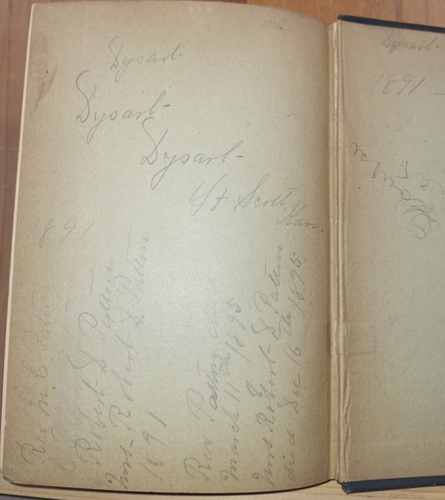 Dysart
Dysart
Dysart
Ft Scott
Kan.
1891
Rev
Robert L Patton
Mrs. Robert L Patton
1891
Rev Patton
March 11th 1895
Mrs Robert L Patton
died Dec 16th 1895
Dysart
1891